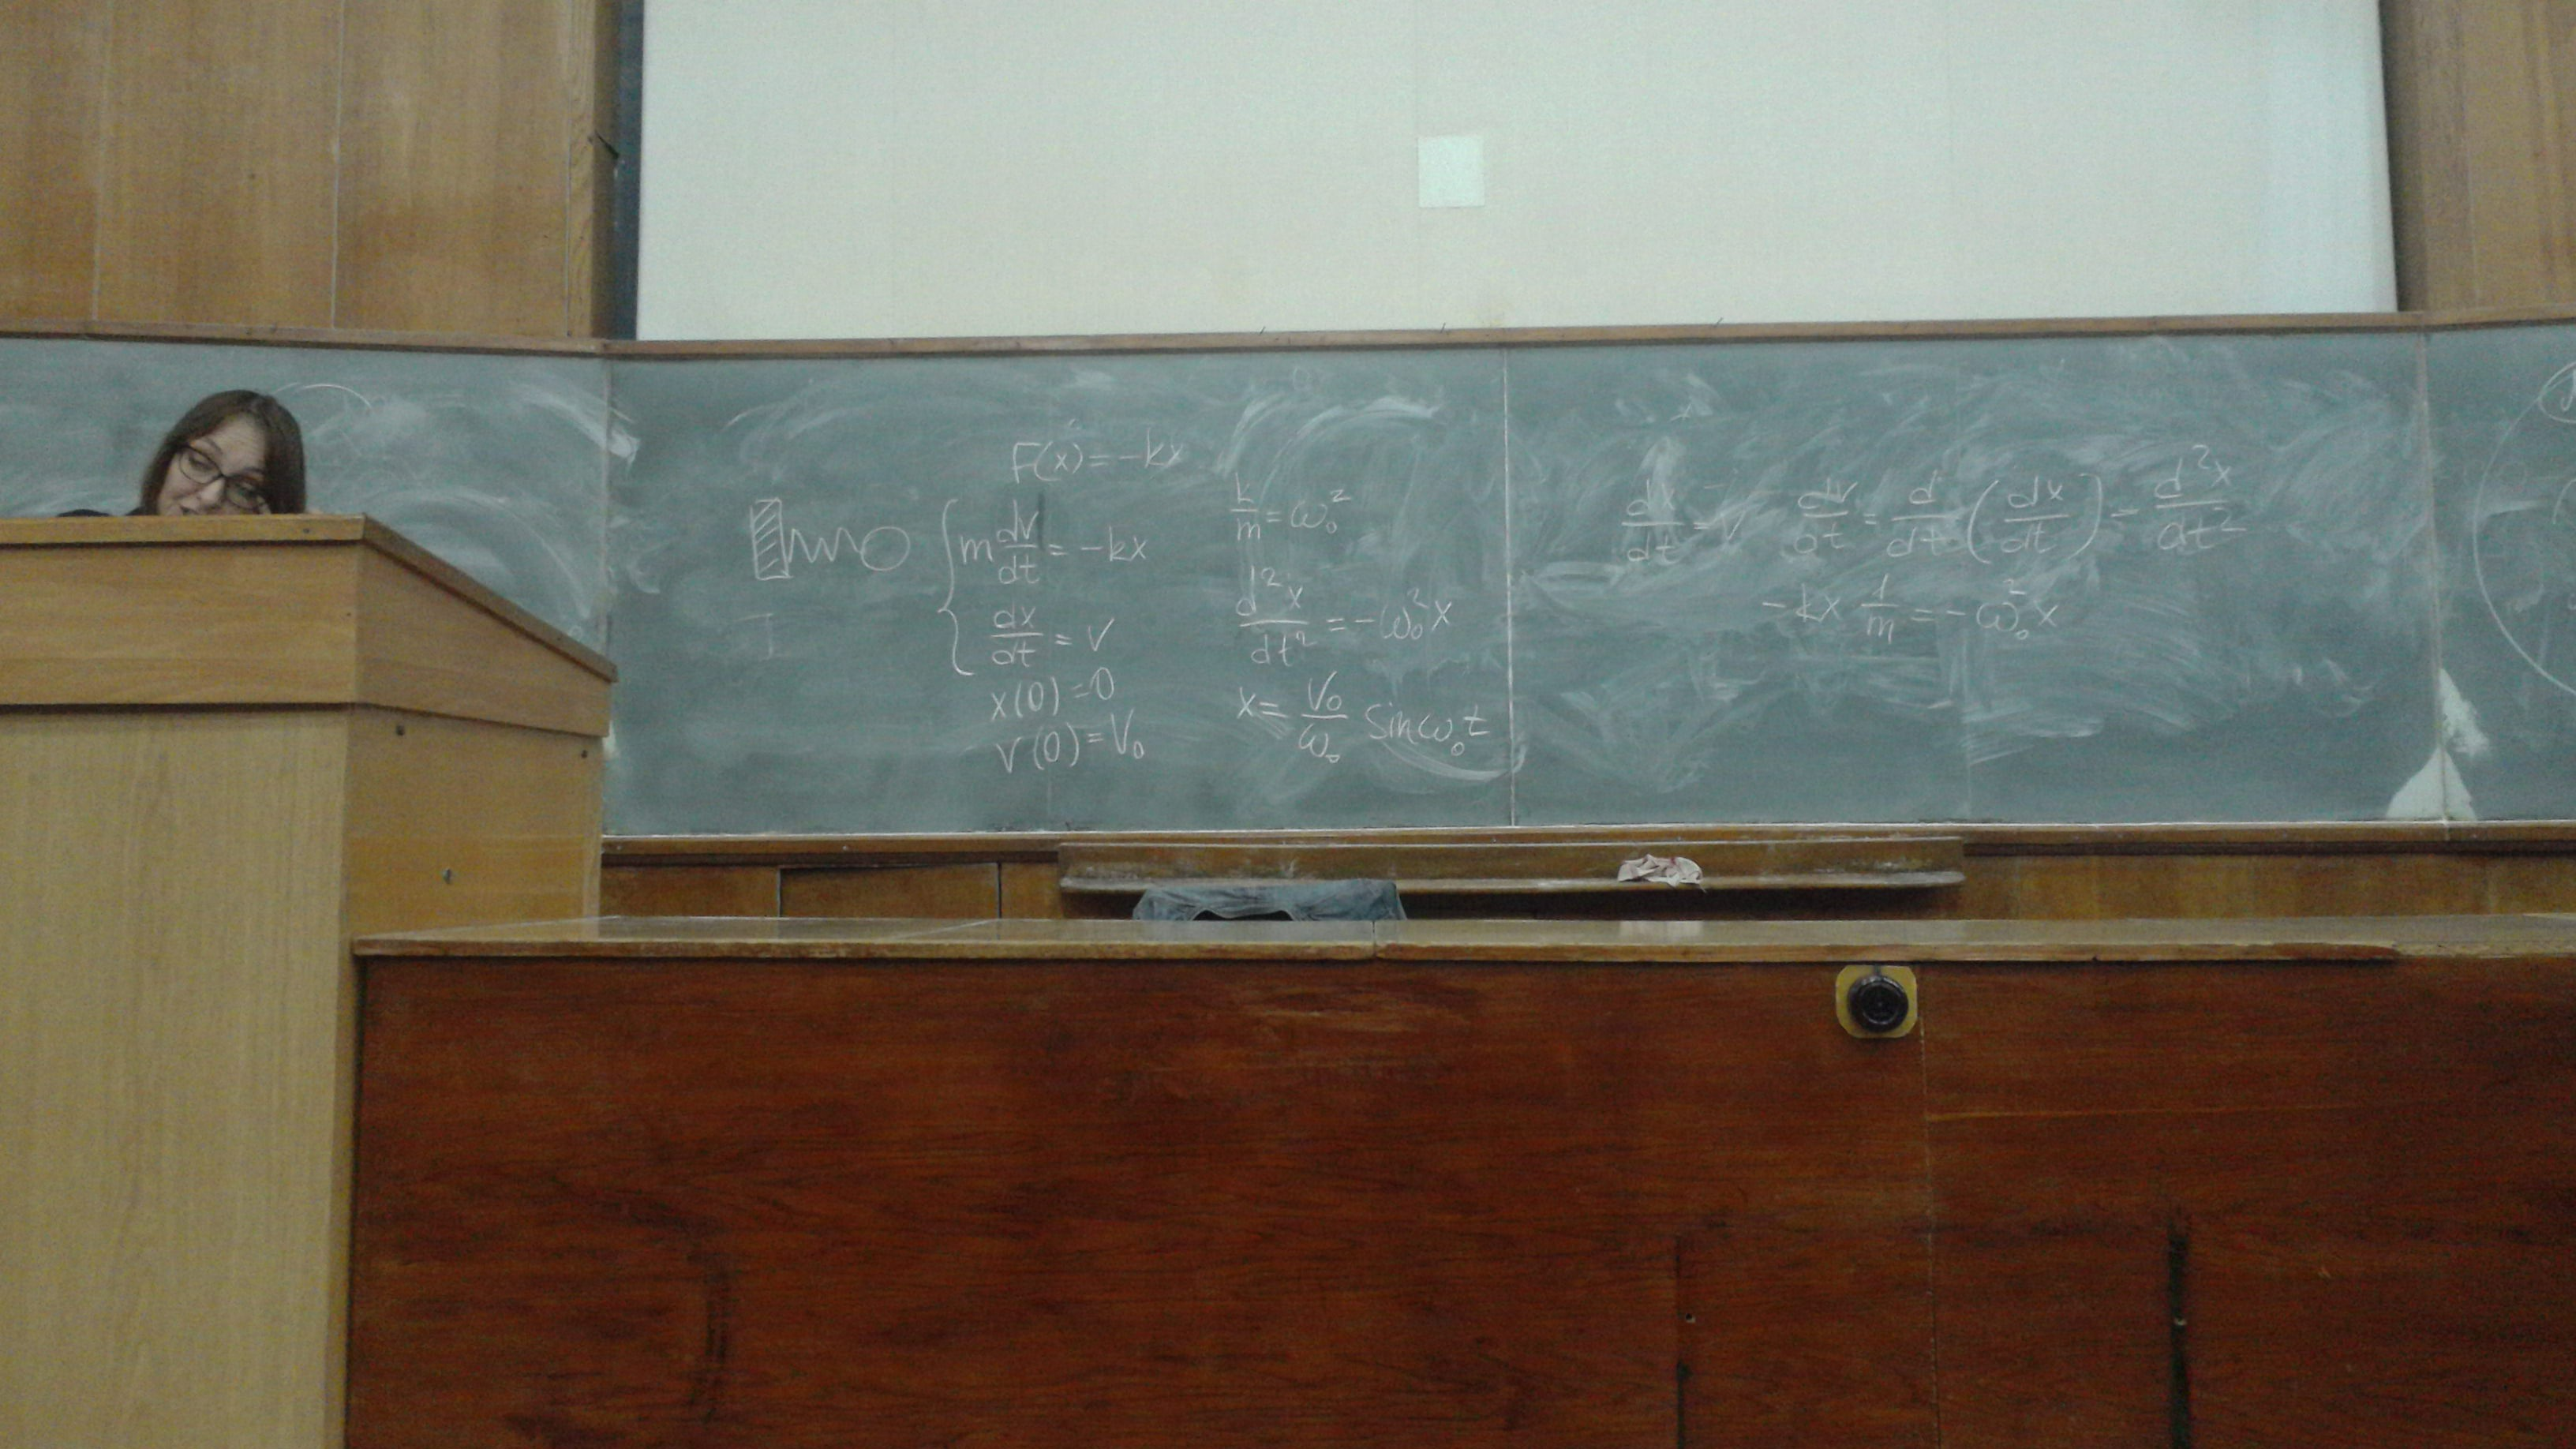 F(x) = -kx
m dv/dt = -kx
dx/dt = v
x(0) = 0
v(0) = V₀
k/m = ω₀²
d²x/dt² = -ω₀²x
x = V₀/ω₀ sin ω₀t
dx/dt = v dv/dt = d/dt (dx/dt) = d²x/dt²
-kx 1/m = -ω₀²x